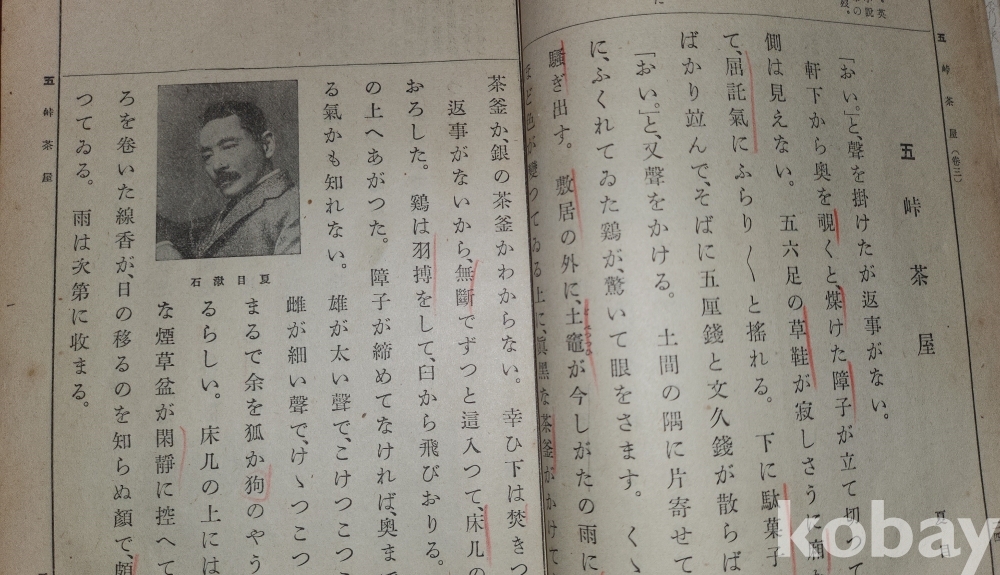 五　峠茶屋
夏目
「おい。」と、聲を掛けたが返事がない。
軒下から奧を覗くと、煤けた障子が立て切つて
側は見えない。　五六足の草鞋が寂しさうに廂
て、屈託氣にふらり〳〵と搖れる。　下に駄菓子
ばかり竝んで、そばに五厘錢と文久錢が散らば
「おい。」と、又聲をかける。　土間の隅に片寄せて
に、ふくれてゐた鷄が、驚いて眼をさます。　くゝ
騷ぎ出す。　敷居の外に、土竈が今しがたの雨に
ほど色が變つてゐる上に、眞黑な茶釜がかけて
茶釜か、銀の茶釜かわからない。　幸ひ下は焚きつ
返事がないから、無斷でずつと這入つて、床几の
おろした。　鷄は羽搏をして、臼から飛びおりる。
の上へあがつた。　障子が締めてなければ、奧まで
る氣かも知れない。　雄が太い聲で、こけつこつこ
雌が細い聲で、けゝつこつ
まるで余を狐か狗のやう
るらしい。　床几の上には
な煙草盆が閑靜に控へて
ろを卷いた線香が、日の移るのを知らぬ顏で、頗
つてゐる。　雨は次第に收まる。
夏目漱石
五　峠茶屋（卷三）
五　峠茶屋
kobay